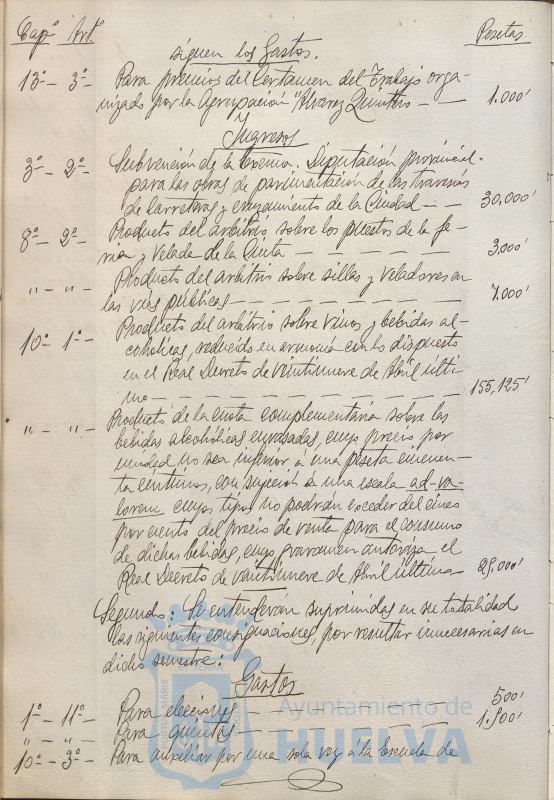 Capº Artº Pesetas
siguen los Gastos.
13º — 3º — Para premios del Certamen del Trabajo orga-
nizado por la Agrupación "Alvarez Quintero — — 1.000'
Ingresos
3º — 2º — Subvención de la Excma. Diputación provincial.
para las obras de pavimentación de las travesías
de carreteras y cruzamiento de la Ciudad — — 30,000'
8º — 2º — Producto del arbitrio sobre los puestos de la fe-
ria y Velada de la Cinta — — — — — 3,000'
" — " — Producto del arbitrio sobre sillas y veladores en
las vías públicas — — — — — — — 7.000'
10º — 1º — Producto del arbitrio sobre vinos y bebidas al-
cohólicas, reducido en armonía con lo dispuesto
en el Real Decreto de veintinueve de Abril últi-
mo — — — — — — — — — 155,125'
" — " — Producto de la cuota complementaria sobre las
bebidas alcohólicas envasadas, cuyo precio por
unidad no sea inferior á una peseta cincuen-
ta céntimos, con sujeción á una escala ad-va-
lorem cuyos tipos no podrán exceder del cinco
por ciento del precio de venta para el consumo
de dichas bebidas, cuyo gravamen autoriza el
Real Decreto de veintinueve de Abril último — 25,000'
Segundo: Se entenderán suprimidas en su totalidad
las siguientes consignaciones, por resultar innecesarias en
dicho semestre:
Gastos
1º — 11º — Para elecciones — — — — — 500'
" — " — Para quintas — — — — — 1.500'
10º — 3º — Para auxiliar por una sola vez á la Escuela de
Ayuntamiento de
HUELVA